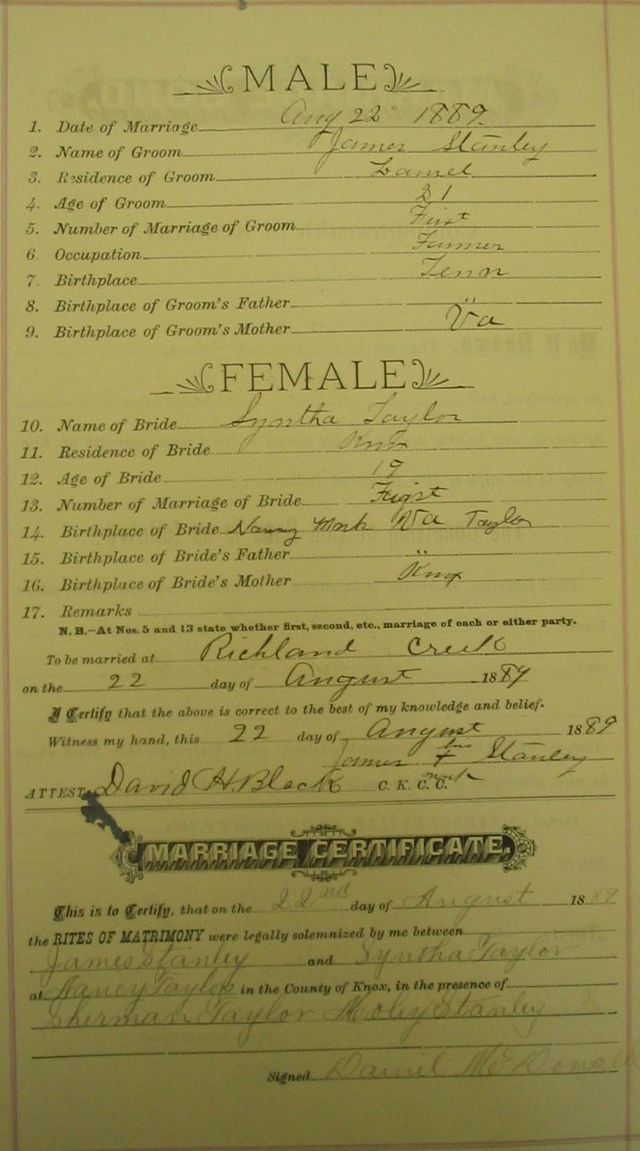 MALE
1. Date of Marriage Aug 22" 1889.
2. Name of Groom James Stanley
3. Residence of Groom Laurel
4. Age of Groom 21
5. Number of Marriage of Groom First
6. Occupation Farmer
7. Birthplace Tenn
8. Birthplace of Groom's Father "
9. Birthplace of Groom's Mother Va
FEMALE
10. Name of Bride Syntha Taylor
11. Residence of Bride Knox
12. Age of Bride 19
13. Number of Marriage of Bride First
14. Birthplace of Bride Va Taylor
15. Birthplace of Bride's Father "
16. Birthplace of Bride's Mother Knox
17. Remarks
N. B.—At Nos. 5 and 13 state whether first, second, etc., marriage of each or either party.
To be married at Richland Creek
on the 22 day of August 1889
I Certify that the above is correct to the best of my knowledge and belief.
Witness my hand, this 22 day of August 1889
James X Stanley
mark
ATTEST, David H. Black C. K. C. C.
MARRIAGE CERTIFICATE.
This is to Certify, that on the 22nd day of August 1889
the RITES OF MATRIMONY were legally solemnized by me between
James Stanley and Syntha Taylor
at Nancy Taylors in the County of Knox, in the presence of
Sherman Taylor Stanley
Signed Daniel McDonald